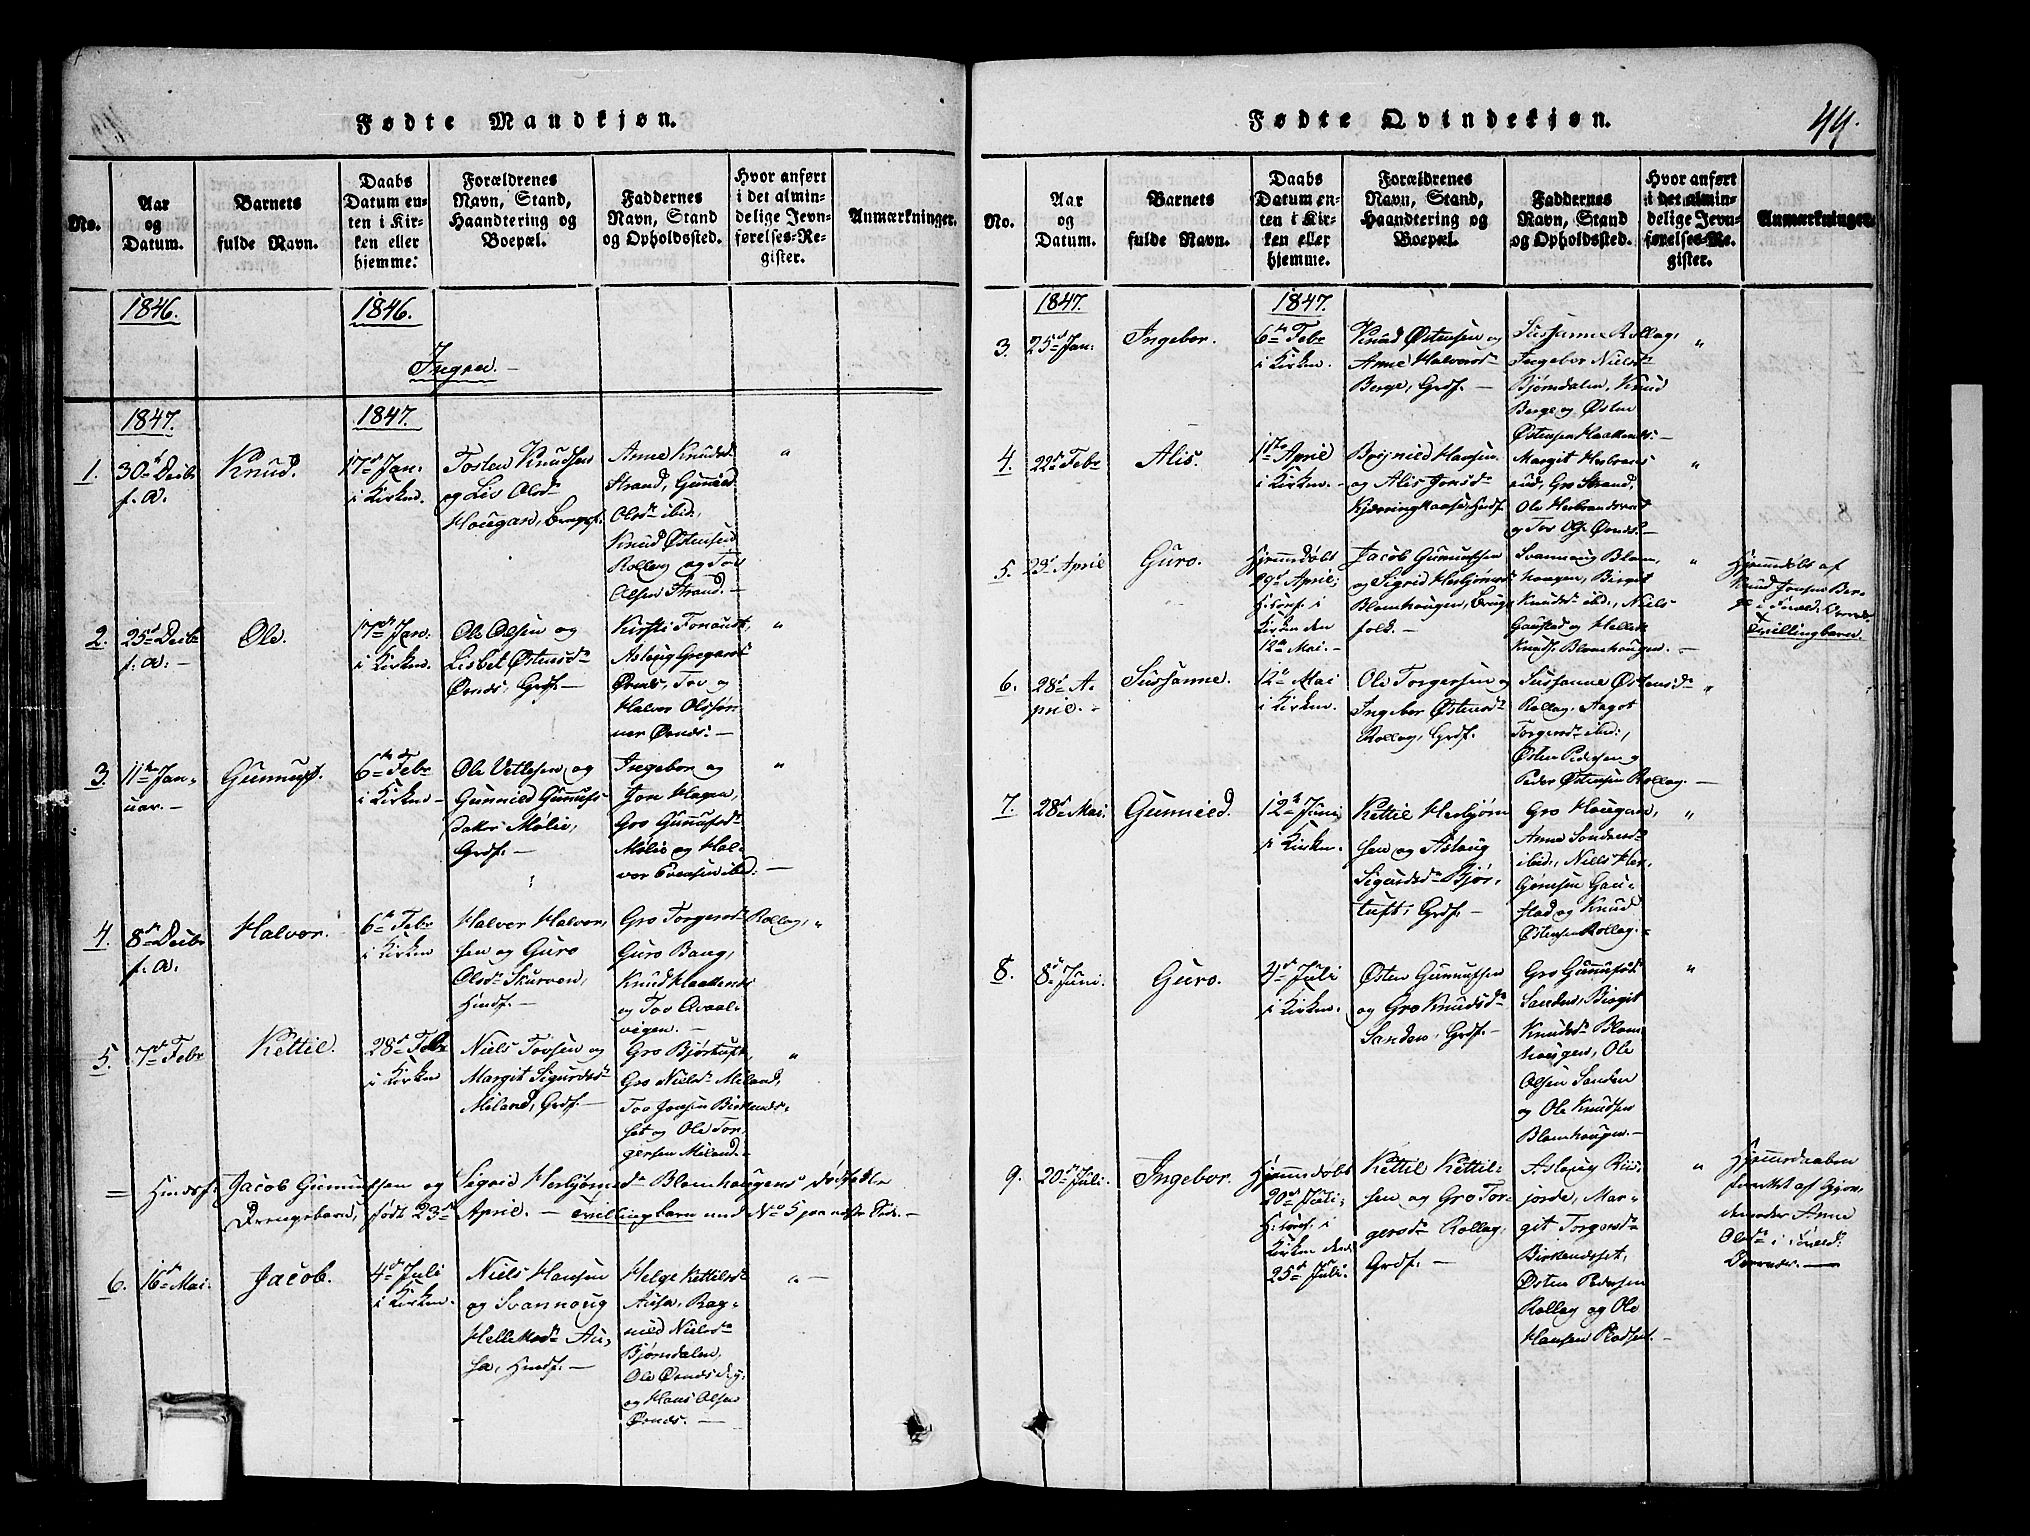 Fødte Mandkjøn.
No.
Aar
og
Datum.
Barnets
fulde Navn.
Daabs
Datum en-
ten i Kir-
ken eller
hjemme.
Forældrenes
Navn, Stand,
Haandtering og
Boepæl.
Faddernes
Navn, Stand
og Opholdssted.
Hvor anført
i det almin-
delige Jevn-
førelses-Re-
gister.
Anmærkninger.
1846.
1846.
Ingen.
1847.
1847.
1.
30d Decbr
f. A.
Knud.
17d Jan.
i Kirken.
Tosten Knudsen
og Liv Olsd
Hougan, Brugsf.
Anne Knudsd
Strand, Gunnild
Olsd ibid.,
Knud Østensen
Rollag og Tov
Olsen Strand.
"
2.
25d Decbr
f. A.
Ole.
17d Jan.
i Kirken.
Ole Olsen og
Lisbet Østensd
Ørnes, Grdf.
Kirsti
Aslaug Gregarsd
Ørnes, Tov og
Halvor Olssøn-
ner Ørnes.
"
3.
11te Jan-
uar.
Gunnuf.
6te Febr
i Kirken
Ole Vetlesen og
Gunnild Gunufs-
datter Mølie,
Grdf.
Ingebor og
Jon Hagen,
Gro Gunnufsd
Mølie og Hal-
vor Evensen ibid.
"
4.
8de Decbr
f. A.
Halvor.
6te Febr
i Kirken
Halvor Halvor-
sen og Guro
Olsd Skurven,
Huusf.
Gro Torgersd Rollag,
Guro Baug,
Knud Haakenæs
og Tov Qvaal-
vigen.
"
5.
7d Febr
Kettil.
28d Febr
i Kirken
Niels Tovsen og
Margit Sigurdsd
Miland, Grdf.
Gro Bjørtuft,
Gro Nielsd Miland,
Tov Jonsen Birkenæs-
set og Ole Tor-
gersen Miland.
"
Huusf. Jacob Gunnufsen og Sigrid Herbjørnsd Blomhougens dødfødte
Drengebarn, født 23d April. Tvillingbarn med No 5 paa næste Side.
6.
16d Mai.
Jacob.
4d Juli
i Kirken.
Niels Hansen
og Svannoug
Helleksd Au-
sa, Huusf.
Helge Kettilsd
Ausa, Rag-
nild Nielsd
Bjørndalen,
Ole Ørnes
og Hans Olsen
Ørnes.
"
Fødte Qvindekjøn.
44.
No.
Aar
og
Datum.
Barnets
fulde Navn.
Daabs
Datum en-
ten i Kir-
ken eller
hjemme.
Forældrenes
Navn, Stand,
Haandtering og
Boepæl.
Faddernes
Navn, Stand
og Opholdssted.
Hvor anført
i det almin-
delige Jevn-
førelses-Re-
gister.
Anmærkninger.
1847.
1847.
3.
25d Jan.
Ingebor.
6te Febr
i Kirken.
Knud Østensen og
Anne Halvorsd
Berge, Grdf.
Sussanne Rollag,
Ingebor Nielsd
Bjørndalen, Knud
Berge og Østen
Østensen Haakenæs.
"
4.
22d Febr
Alis.
1ste April
i Kirken.
Brynild Hansen
og Alis Jonsd
Kjerringhaasa, Huusf.
Margit Herbrans-
rud, Gro Strand,
Ole Herbrandsrud
og Tov Ols. Ørnes.
"
5.
23d April
Guro.
Hjemmedøbt
29d April;
i
Kirken den
12te Mai.
Jacob Gunnufsen
og Sigrid Herbjørnsd
Blomhougen, Brugs-
folk.
Svannoug Blom-
hougen, Birgit
Knudsd ibid., Niels
Gaustad og Hellek
Knuds. Blomhougen.
"
Hjemmedøbt af
Knud Jonsen Ber-
ge i
Tvillingbarn.
6.
28d A-
pril.
Sussanne.
12te Mai
i Kirken.
Ole Torgersen og
Ingebor Østensd
Rollag, Grdf.
Sussanne Østensd
Rollag, Aagot
Torgersd ibid.,
Østen Pedersen og
Peder Østensen Rollag.
"
7.
28d Mai.
Gunnild.
12te Juni
i Kirken.
Kettil Herbjørn-
sen og Aslaug
Sigurdsd Bjør-
tuft, Grdf.
Gro Hougan,
Anne Sondresd
ibid., Niels Her-
bjørnsen Gau-
stad og Knud
Østensen Rollag.
"
8.
8d Juni.
Guro.
4d Juli
i Kirken.
Østen Gunnufsen
og Gro Knudsd
Sanden, Grdf.
Gro Gunnufsd
Sanden, Birgit
Knudsd Blom-
hougen, Ole
Olsen Sanden
og Ole Knudsen
Blomhougen.
"
9.
20d Juli.
Ingebor.
Hjemmedøbt
20d Juli;
i
Kirken den
25d Juli.
Kettil Kettil-
sen og Gro Tor-
gersd Rollag,
Grdf.
Aslaug Rui-
jorde, Mar-
git Torgersd
Birkenæsset,
Østen Pedersen
Rollag og Ole
Hansen
"
Hjemmedaaben
forrettet af Gjor-
demoder Anne
Olsd i